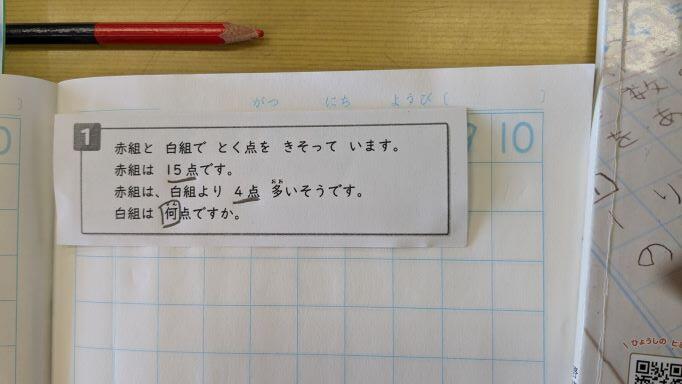 がつ にち ようび
1
赤組と 白組で とく点を きそって います。
赤組は 15点です。
赤組は、白組より 4点 多いそうです。
おお
白組は 何点ですか。
10
ひょうしの